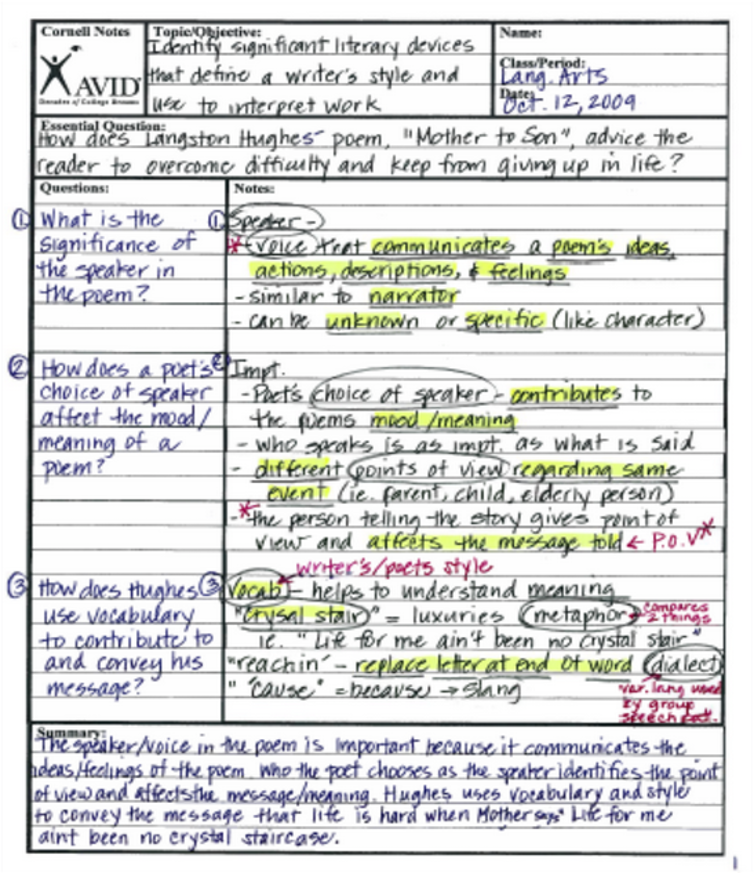 Cornell Notes
AVID
Decades of College Dreams
Topic/Objective:
Identify significant literary devices
that define a writer's style and
use to interpret work
Name:
Class/Period:
Lang. Arts
Date:
Oct. 12, 2009
Essential Question:
How does Langston Hughes' poem, "Mother to Son", advice the
reader to overcome difficulty and keep from giving up in life?
Questions:
① What is the
significance of
the speaker in
the poem?
② How does a poet's
choice of speaker
affect the mood/
meaning of a
poem?
③ How does Hughes
use vocabulary
to contribute to
and convey his
message?
Notes:
① Speaker -
* - voice that communicates a poem's ideas,
actions, descriptions, & feelings
- similar to narrator
- can be unknown or specific (like character)
② Impt.
- Poet's choice of speaker - contributes to
the poems mood/meaning
- who speaks is as impt. as what is said
- different points of view regarding same
event (ie. parent, child, elderly person)
- * the person telling the story gives point of
view and affects the message told ← P.O.V *
writer's/poets style
③ Vocab - helps to understand meaning
"Crysal stair" = luxuries (metaphor) → compares
2 things
ie. "Life for me ain't been no crystal stair"
"reachin' - replace letter at end of word (dialect)
" 'cause" = because → slang
var. lang used
by group
speech patt.
Summary:
The speaker/voice in the poem is important because it communicates the
ideas/feelings of the poem. Who the poet chooses as the speaker identifies the point
of view and affects the message/meaning. Hughes uses vocabulary and style
to convey the message that life is hard when Mother says "Life for me
aint been no crystal staircase.
1